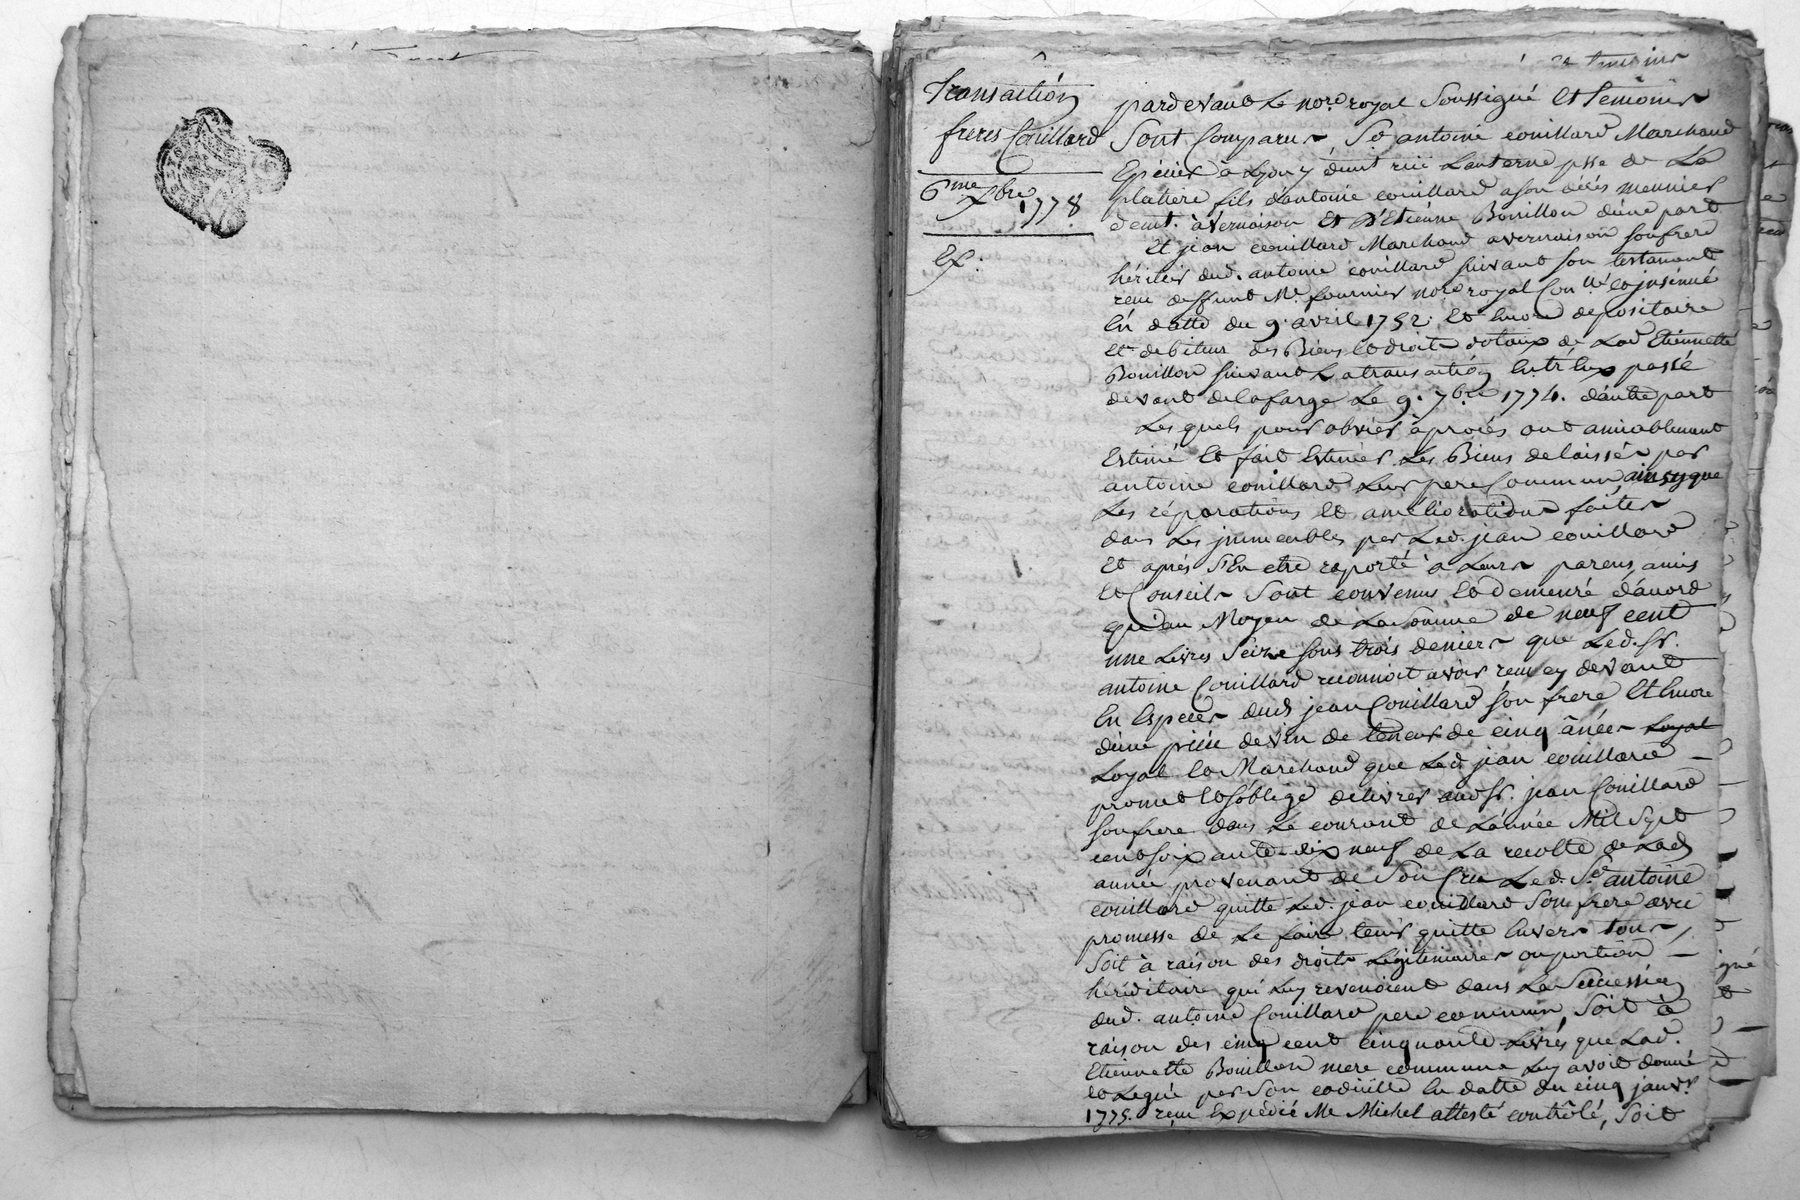 Transaction
freres Couillard
6me Xbre
1778
Ex.
pardevant Le nore royal Soussigné Et temoins
Sont Comparus Sr antoine couillard Marchand
Epicier a Lyon y demt rüe Lanterne psse de La
platiere fils d'antoine couillard a son décés meunier
demt. à vernaison Et d'Etienne Bouillon d'une part
Et jean couillard Marchand a vernaison son frere
héritier dud. antoine couillard suivant son testament
recu deffunt Me fournier nore royal Con.lle et insinué
En datte du 9. avril 1752. Et Encore depositaire
Et debiteur des Biens Et droits dotaux de Lad Etiennette
Bouillon suivant La transaction Entr'Eux passé
devant delafarge Le 9. 7bre 1774. d'autre part
Lesquels pour obvier à procés ont amiablement
Estimé Et fait Estimer Les Biens delaissés par
antoine couillard Leur pere Commun ainsy que
Les réparations Et ameliorations faites
dans Les immeubles par Led. jean couillard
Et aprés s'En etre raporté a Leurs parens, amis
Et Conseils Sont convenus Et demeuré d'accord
qu'au Moyen de La Somme de neuf cent
une Livres Seize sous trois deniers que Led. Sr.
antoine Couillard reconnoit avoir recu cy devant
En Especes dud jean Couillard son frere Et Encore
d'une piéce de vin de teneur de cinq ânées Loyal
Loyal Et Marchand que Led jean couillard
promet Et s'oblige delivrer aud Sr. jean Couillard
son frere dans Le courant de L'année Mil Sept
cent soixante dix neuf de La recolte de Lad
année provenant de Son Cru Led. Sr antoine
couillard quitte Led. jean couillard Son frere avec
promesse de Le faire tenir quitte Envers tous,
Soit à raison des droits Légitimaires ou portion
héréditaire qui Luy revenoient dans La Succession
dud. antoine Couillard pere commun, Soit à
raison des cinq cent cinquante Livres que Lad.
Etiennette Bouillon mere commune Luy avoit donné
Et Legué par Son codicille En datte du cinq janvr.
1775. recu Expédié Me Michel attesté contrôlé, Soit